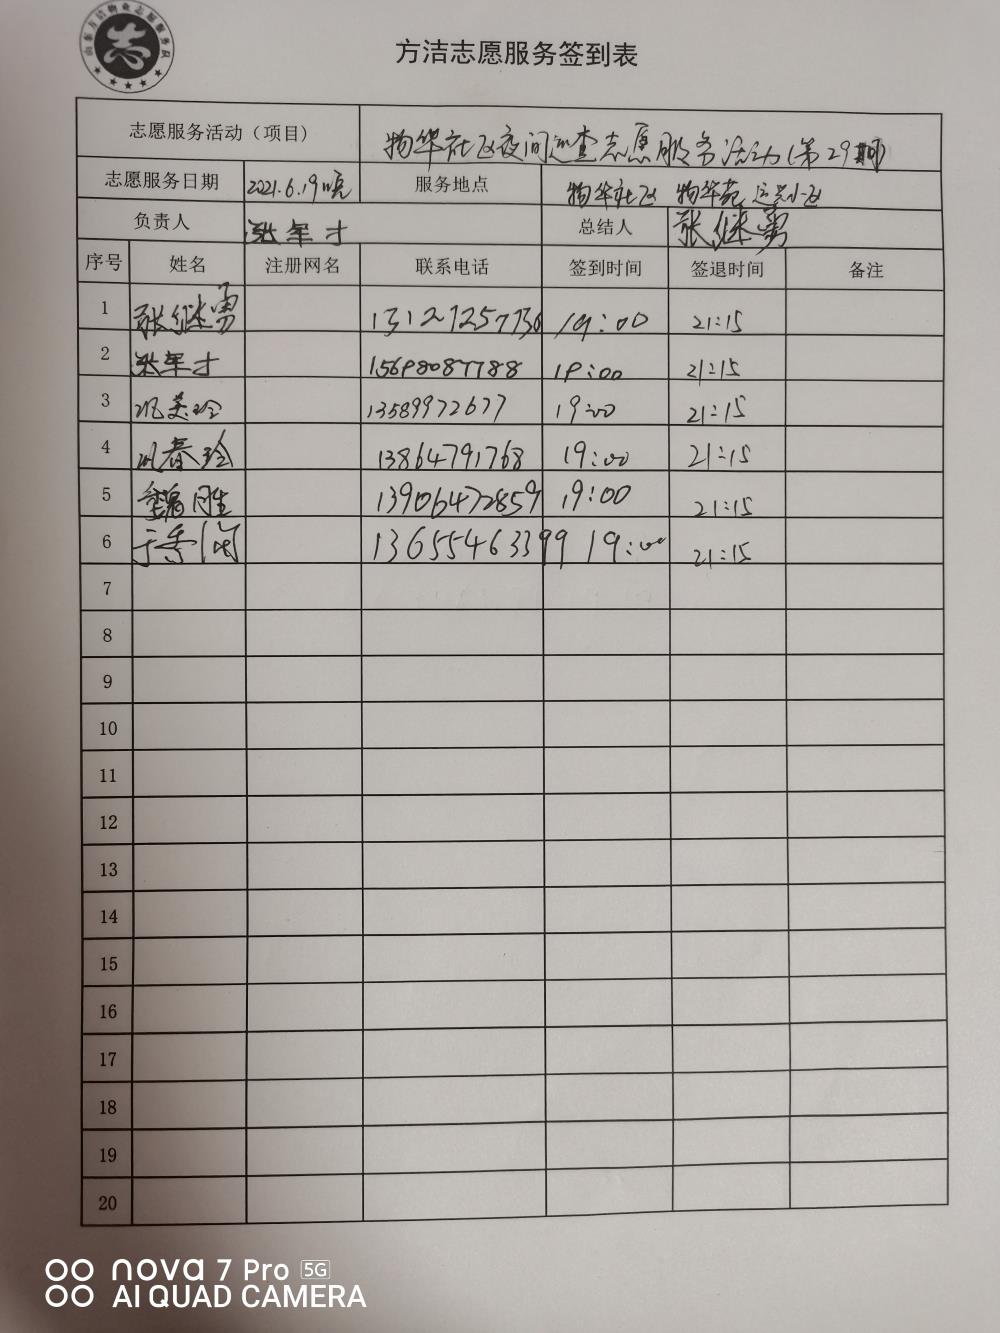 山东方洁物业志愿服务队
志
方洁志愿服务签到表
志愿服务活动（项目） 物华社区夜间巡查志愿服务活动（第29期）
志愿服务日期 2021.6.19晚 服务地点 物华社区 物华苑
负责人 张军才 总结人 张继勇
序号 姓名 注册网名 联系电话 签到时间 签退时间 备注
1 张继勇 13127257730 19:00 21:15
2 张军才 19:00 21:15
3 巩美玲 13589972677 19:00 21:15
4 巩春玲 13864791768 19:00 21:15
5 13906472859 19:00 21:15
6 于秀 13655463399 19:00 21:15
7
8
9
10
11
12
13
14
15
16
17
18
19
20
nova 7 Pro 5G
AI QUAD CAMERA